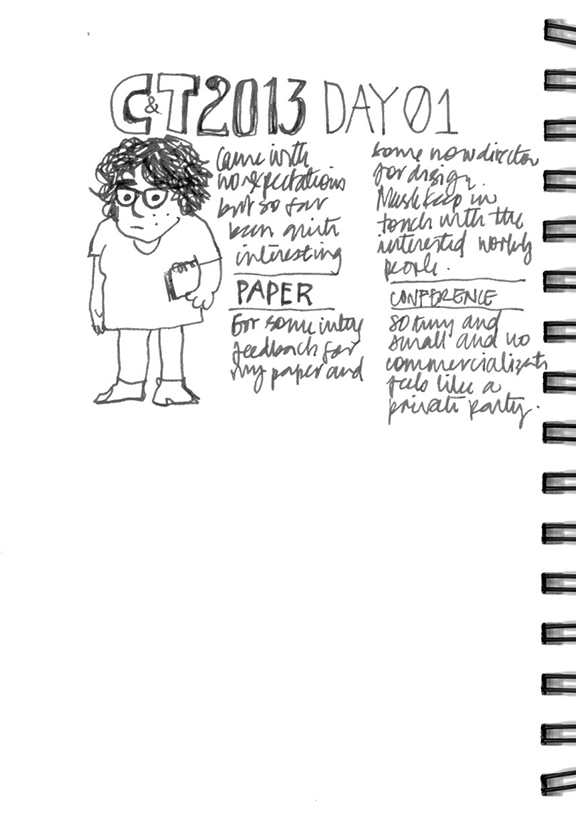 C&T2013 DAY 01
Came with
no expectations
but so far
been quite
interesting
PAPER
Got some intrg
feedback for
my paper and
some new direction
for design.
Must keep in
touch with the
interested working
people.
CONFERENCE
so tiny and
small and no
commercialization
feels like a
private party.